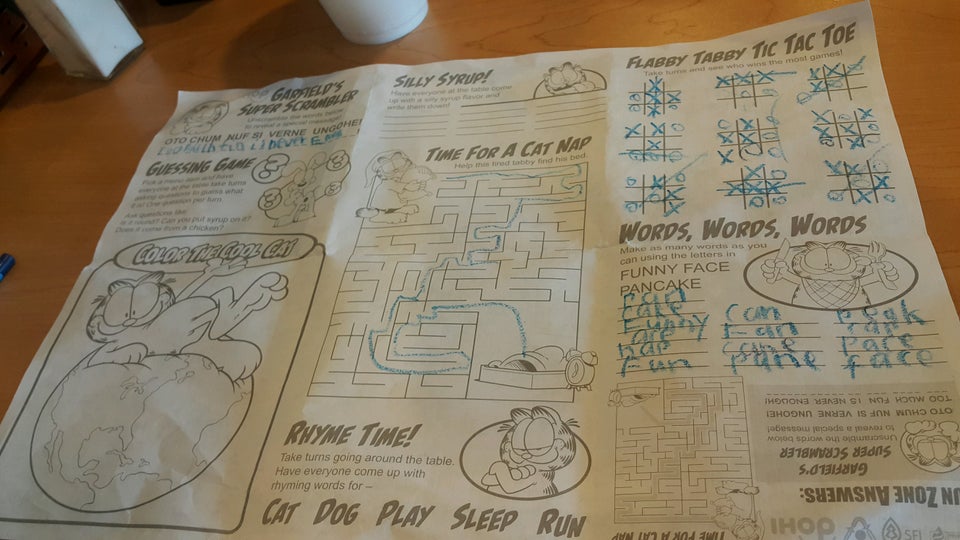 IHOP
GARFIELD'S
SUPER SCRAMBLER
Unscramble the words below
to reveal a special message!
OTO CHUM NUF SI VERNE UNGOHE!
GUESSING GAME
Pick a menu item and have
everyone at the table take turns
asking questions to guess what
it is! One question per turn.
Ask questions like:
Is it round? Can you put syrup on it?
Does it come from a chicken?
COLOR THE COOL CAT
SILLY SYRUP!
Have everyone at the table come
up with a silly syrup flavor and
write them down!
TIME FOR A CAT NAP
Help this tired tabby find his bed.
RHYME TIME!
Take turns going around the table.
Have everyone come up with
rhyming words for –
CAT DOG PLAY SLEEP RUN
FLABBY TABBY TIC TAC TOE
Take turns and see who wins the most games!
WORDS, WORDS, WORDS
Make as many words as you
can using the letters in
FUNNY FACE
PANCAKE
cake can peak
Funny Fan
pace
Fun pane face
UN ZONE ANSWERS:
GARFIELD'S
SUPER SCRAMBLER
Unscramble the words below
to reveal a special message!
OTO CHUM NUF SI VERNE UNGOHE!
TOO MUCH FUN IS NEVER ENOUGH!
TIME FOR A CAT NAP
IHOP
SFI